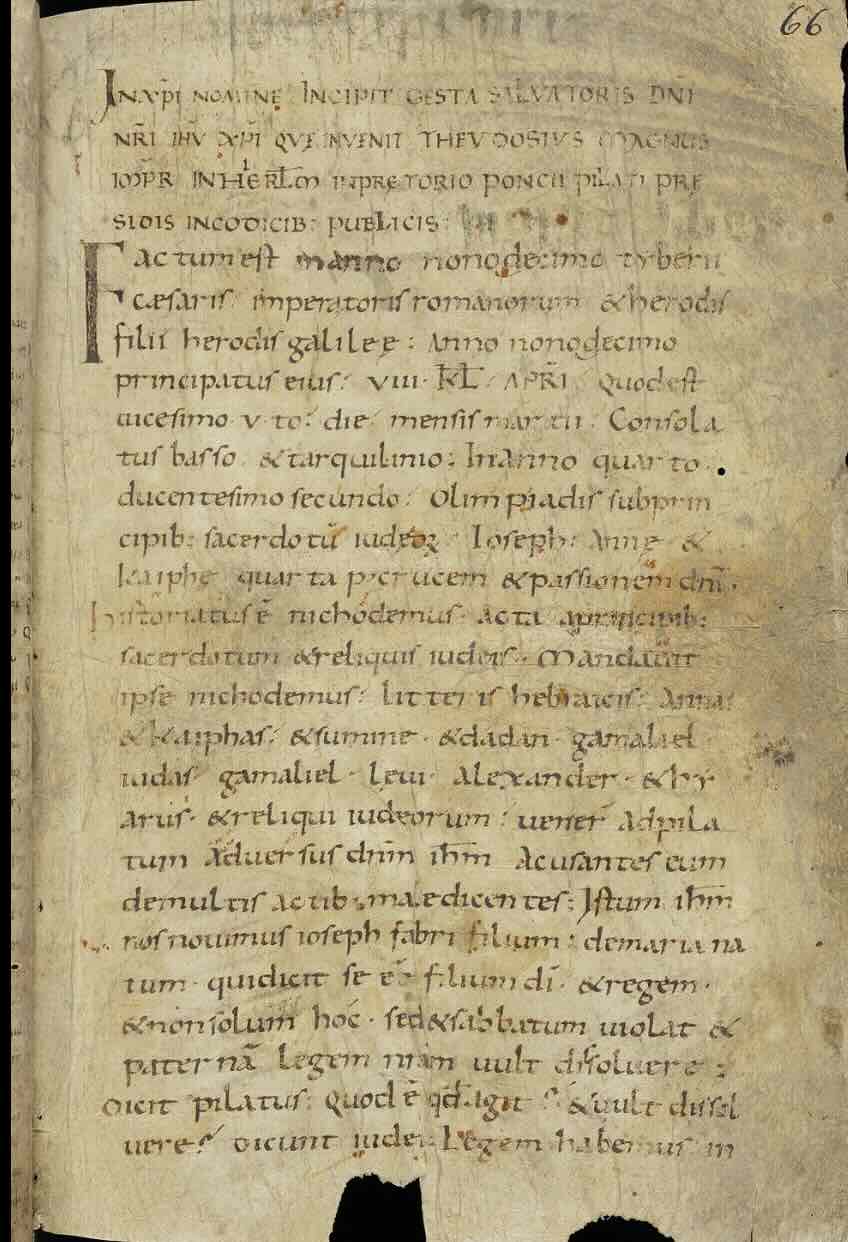 66
IN XPI NOMINE INCIPIT GESTA SALVATORIS DNI
NRI IHU XPI QUE INVENIT THEUDOSIUS MAGNUS
IMPR IN HIERLM IN PRETORIO PONCII PILATI PRE
SIDIS IN CODICIB: PUBLICIS:
Factum est in anno nonodecimo tyberii
caesaris imperatoris romanorum & herodis
filii herodis galileę: Anno nonodecimo
principatus eius: VIII·KL· APRI· Quod est
uicesimo·v·to: die mensis martii. Consola
tus basso & tarquilinio: In anno quarto.
ducentesimo secundo: Olimpiadis sub prin
cipib: sacerdotū iudeoꝝ: Ioseph: Anne &
kaiphę quarta p; crucem & passionem dni.
historiatus ē nichodemus. Acta a principib:
sacerdotum & reliquis iudeis. Mandauit
ipse nichodemus: litteris hebraicis: Annas
& kaiphas: & summe· & dadan· gamaliel
iudas gamaliel· leui· Alexander· & hy
arus· & reliqui iudeorum: uener̄ ad pila
tum Aduersus dnm ihm Acusantes eum
de multis actib; maledicentes: Istum ihm
nos nouimus ioseph fabri filium: de maria na
tum· qui dicit se eē filium di· & regem·
& non solum hoc· sed & sabbatum uiolat &
paternā legem nrām uult dissoluere:
Dicit pilatus: Quod ē qd agit? & uult dissol
uere? Dicunt iudei: Legem habemus in